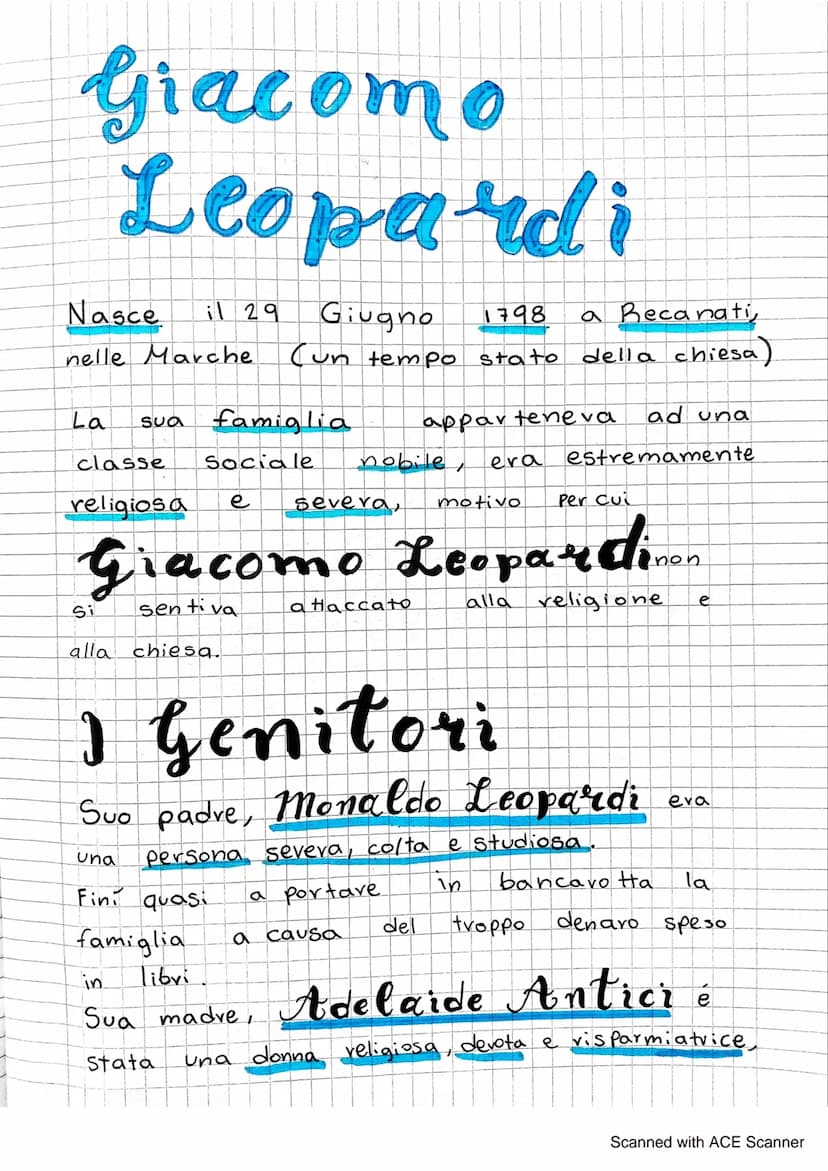 Giacomo
Leopardi
Nasce il 29 Giugno 1798 a Recanati,
nelle Marche (un tempo stato della chiesa)
La sua famiglia apparteneva ad una
classe sociale nobile, era estremamente
religiosa e severa, motivo per cui
Giacomo Leopardi non
si sentiva attaccato alla religione e
alla chiesa.
I Genitori
Suo padre, Monaldo Leopardi era
una persona severa, colta e studiosa.
Finí quasi a portare in bancarotta la
famiglia a causa del troppo denaro speso
in libri.
Sua madre, Adelaide Antici é
stata una donna religiosa, devota e risparmiatrice,
Scanned with ACE Scanner